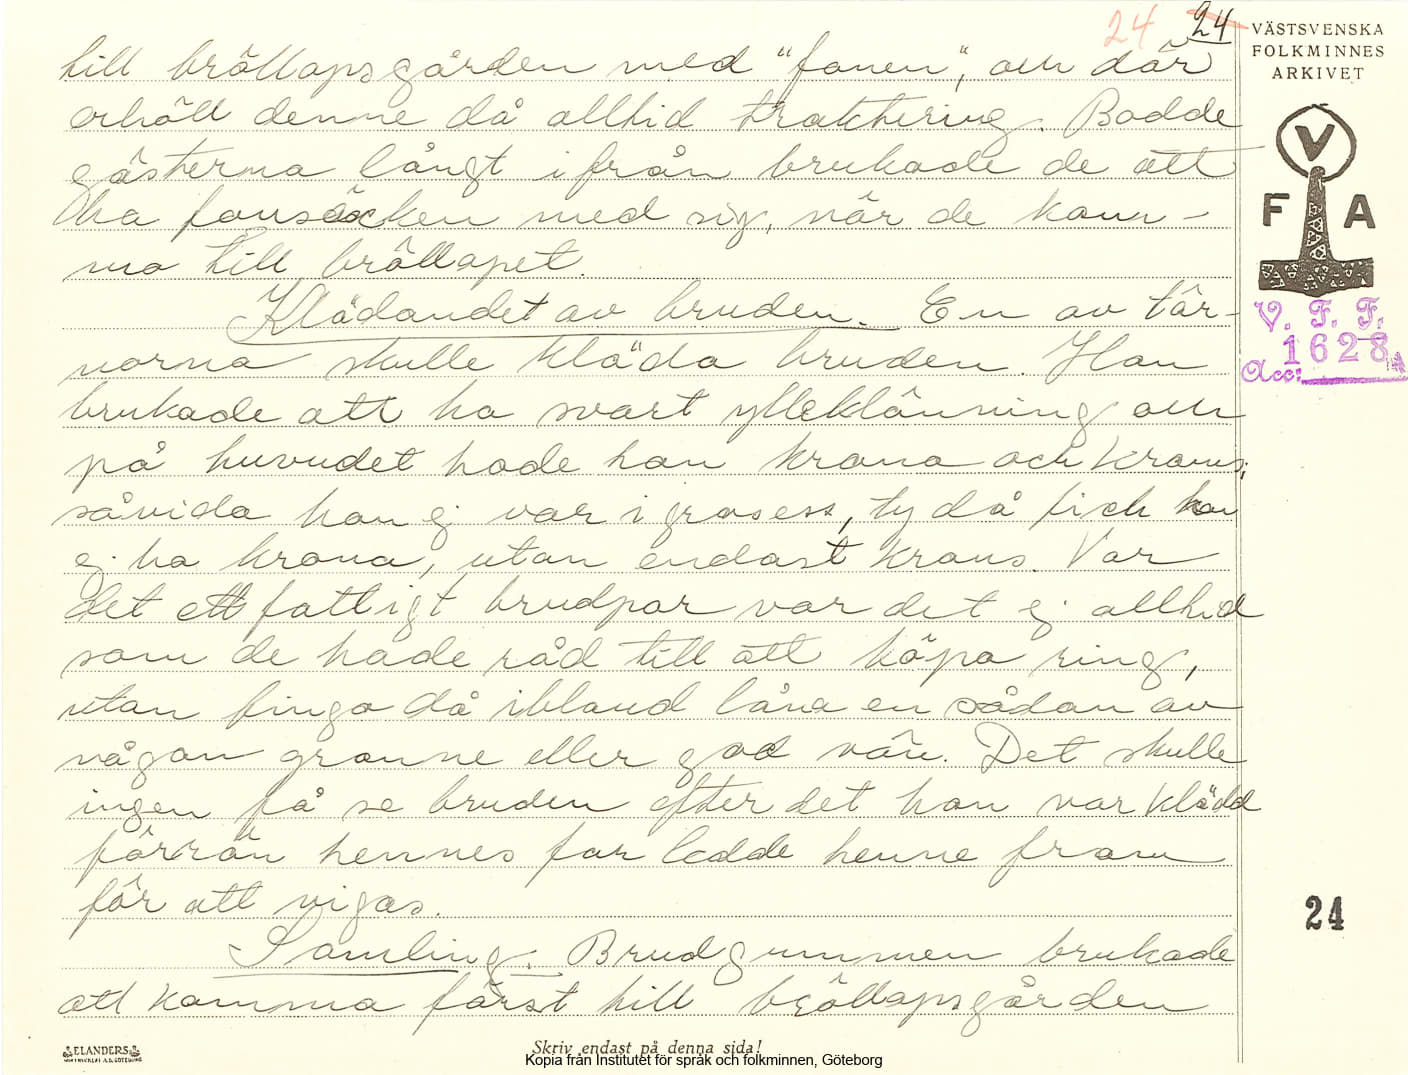 24 24
VÄSTSVENSKA
FOLKMINNES
ARKIVET
V
F A
V. F. F.
1628
Acc:
till bröllopsgården med "fonen", och där
erhöll denne då alltid traktering. Bodde
gästerna långt ifrån brukade de att
ha fonsäcken med sig, när de kom-
mo till bröllopet.
Klädandet av bruden. En av tär-
norna skulle kläda bruden. Hon
brukade att ha svart ylleklänning och
på huvudet hade hon krona och krans,
såvida hon ej var i grosess, ty då fick hon
ej ha krona, utan endast krans. Var
det ett fattigt brudpar var det ej alltid
som de hade råd till att köpa ring,
utan fingo då ibland låna en sådan av
någon granne eller god vän. Det skulle
ingen få se bruden efter det hon var klädd
förrän hennes far ledde henne fram
för att vigas.
Samling. Brudgummen brukade
att komma först till bröllopsgården
24
ELANDERS
Skriv endast på denna sida!
Kopia från Institutet för språk och folkminnen, Göteborg